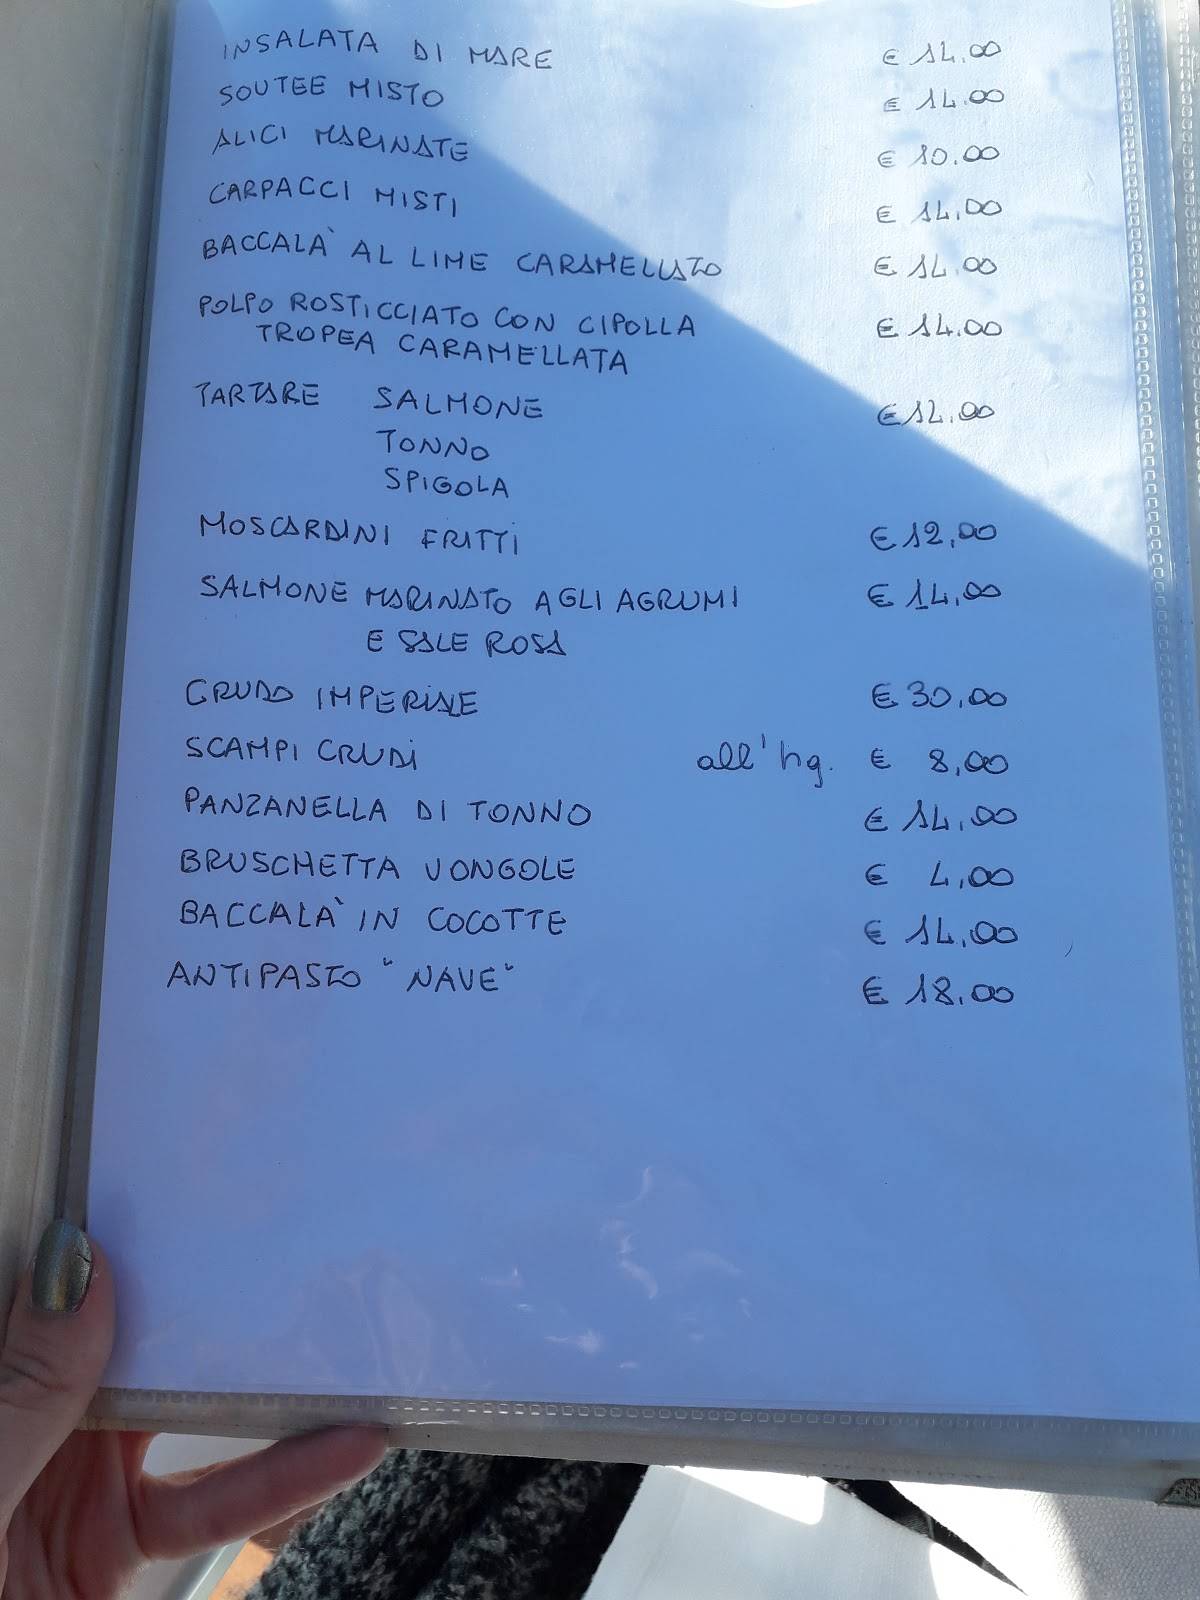 INSALATA DI MARE € 14.00
SOUTEE MISTO € 14.00
ALICI MARINATE € 10.00
CARPACCI MISTI € 14.00
BACCALA' AL LIME CARAMELLATO € 14.00
POLPO ROSTICCIATO CON CIPOLLA € 14.00
TROPEA CARAMELLATA
TARTARE SALMONE € 12.00
TONNO
SPIGOLA
MOSCARDINI FRITTI € 12,00
SALMONE MARINATO AGLI AGRUMI € 14,00
E SALE ROSA
CRUDO IMPERIALE € 30,00
SCAMPI CRUDI all'hg. € 8,00
PANZANELLA DI TONNO € 14,00
BRUSCHETTA VONGOLE € 4,00
BACCALA' IN COCOTTE € 14,00
ANTIPASTO "NAVE" € 18.00